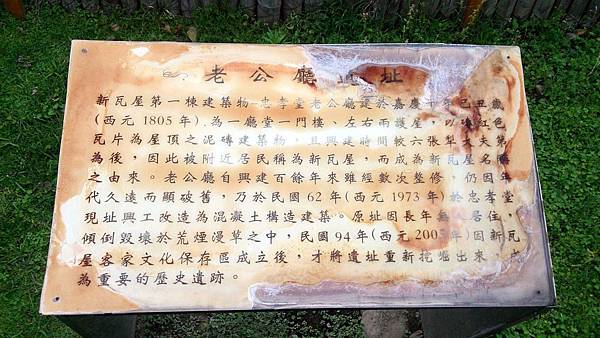 老公廳遺址
新瓦屋第一棟建築物—忠孝堂老公廳建於嘉慶十年己丑歲
(西元 1805 年),為一廳堂一門樓、左右兩護屋,以磚紅色
瓦片為屋頂之泥磚建築物,且興建時間較六張犁大夫第
為後,因此被附近居民稱為新瓦屋,而成為新瓦屋名稱
之由來。老公廳自興建百餘年來雖經數次整修,仍因年
代久遠而顯破舊,乃於民國 62 年(西元 1973 年)於忠孝堂
現址興工改造為混凝土構造建築。原址因長年無 居住,
傾倒毀壞於荒煙漫草之中,民國 94 年(西元 2005 年)因新瓦
屋客家文化保存區成立後,才將遺址重新挖掘出來,
為重要的歷史遺跡。